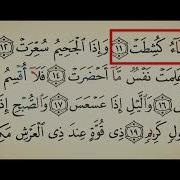 ـَآءُ كُشِطَتْ ١١ وَإِذَا ٱلْجَحِيمُ سُعِّرَتْ ١٢
عَلِمَتْ نَفْسٌ مَّآ أَحْضَرَتْ ١٤ فَلَآ أُقْسِمُ
وَٱلَّيْلِ إِذَا عَسْعَسَ ١٧ وَٱلصُّبْحِ إِذَا
ـولٍ كَرِيمٍ ١٩ ذِى قُوَّةٍ عِندَ ذِى ٱلْعَرْشِ مَكِـ